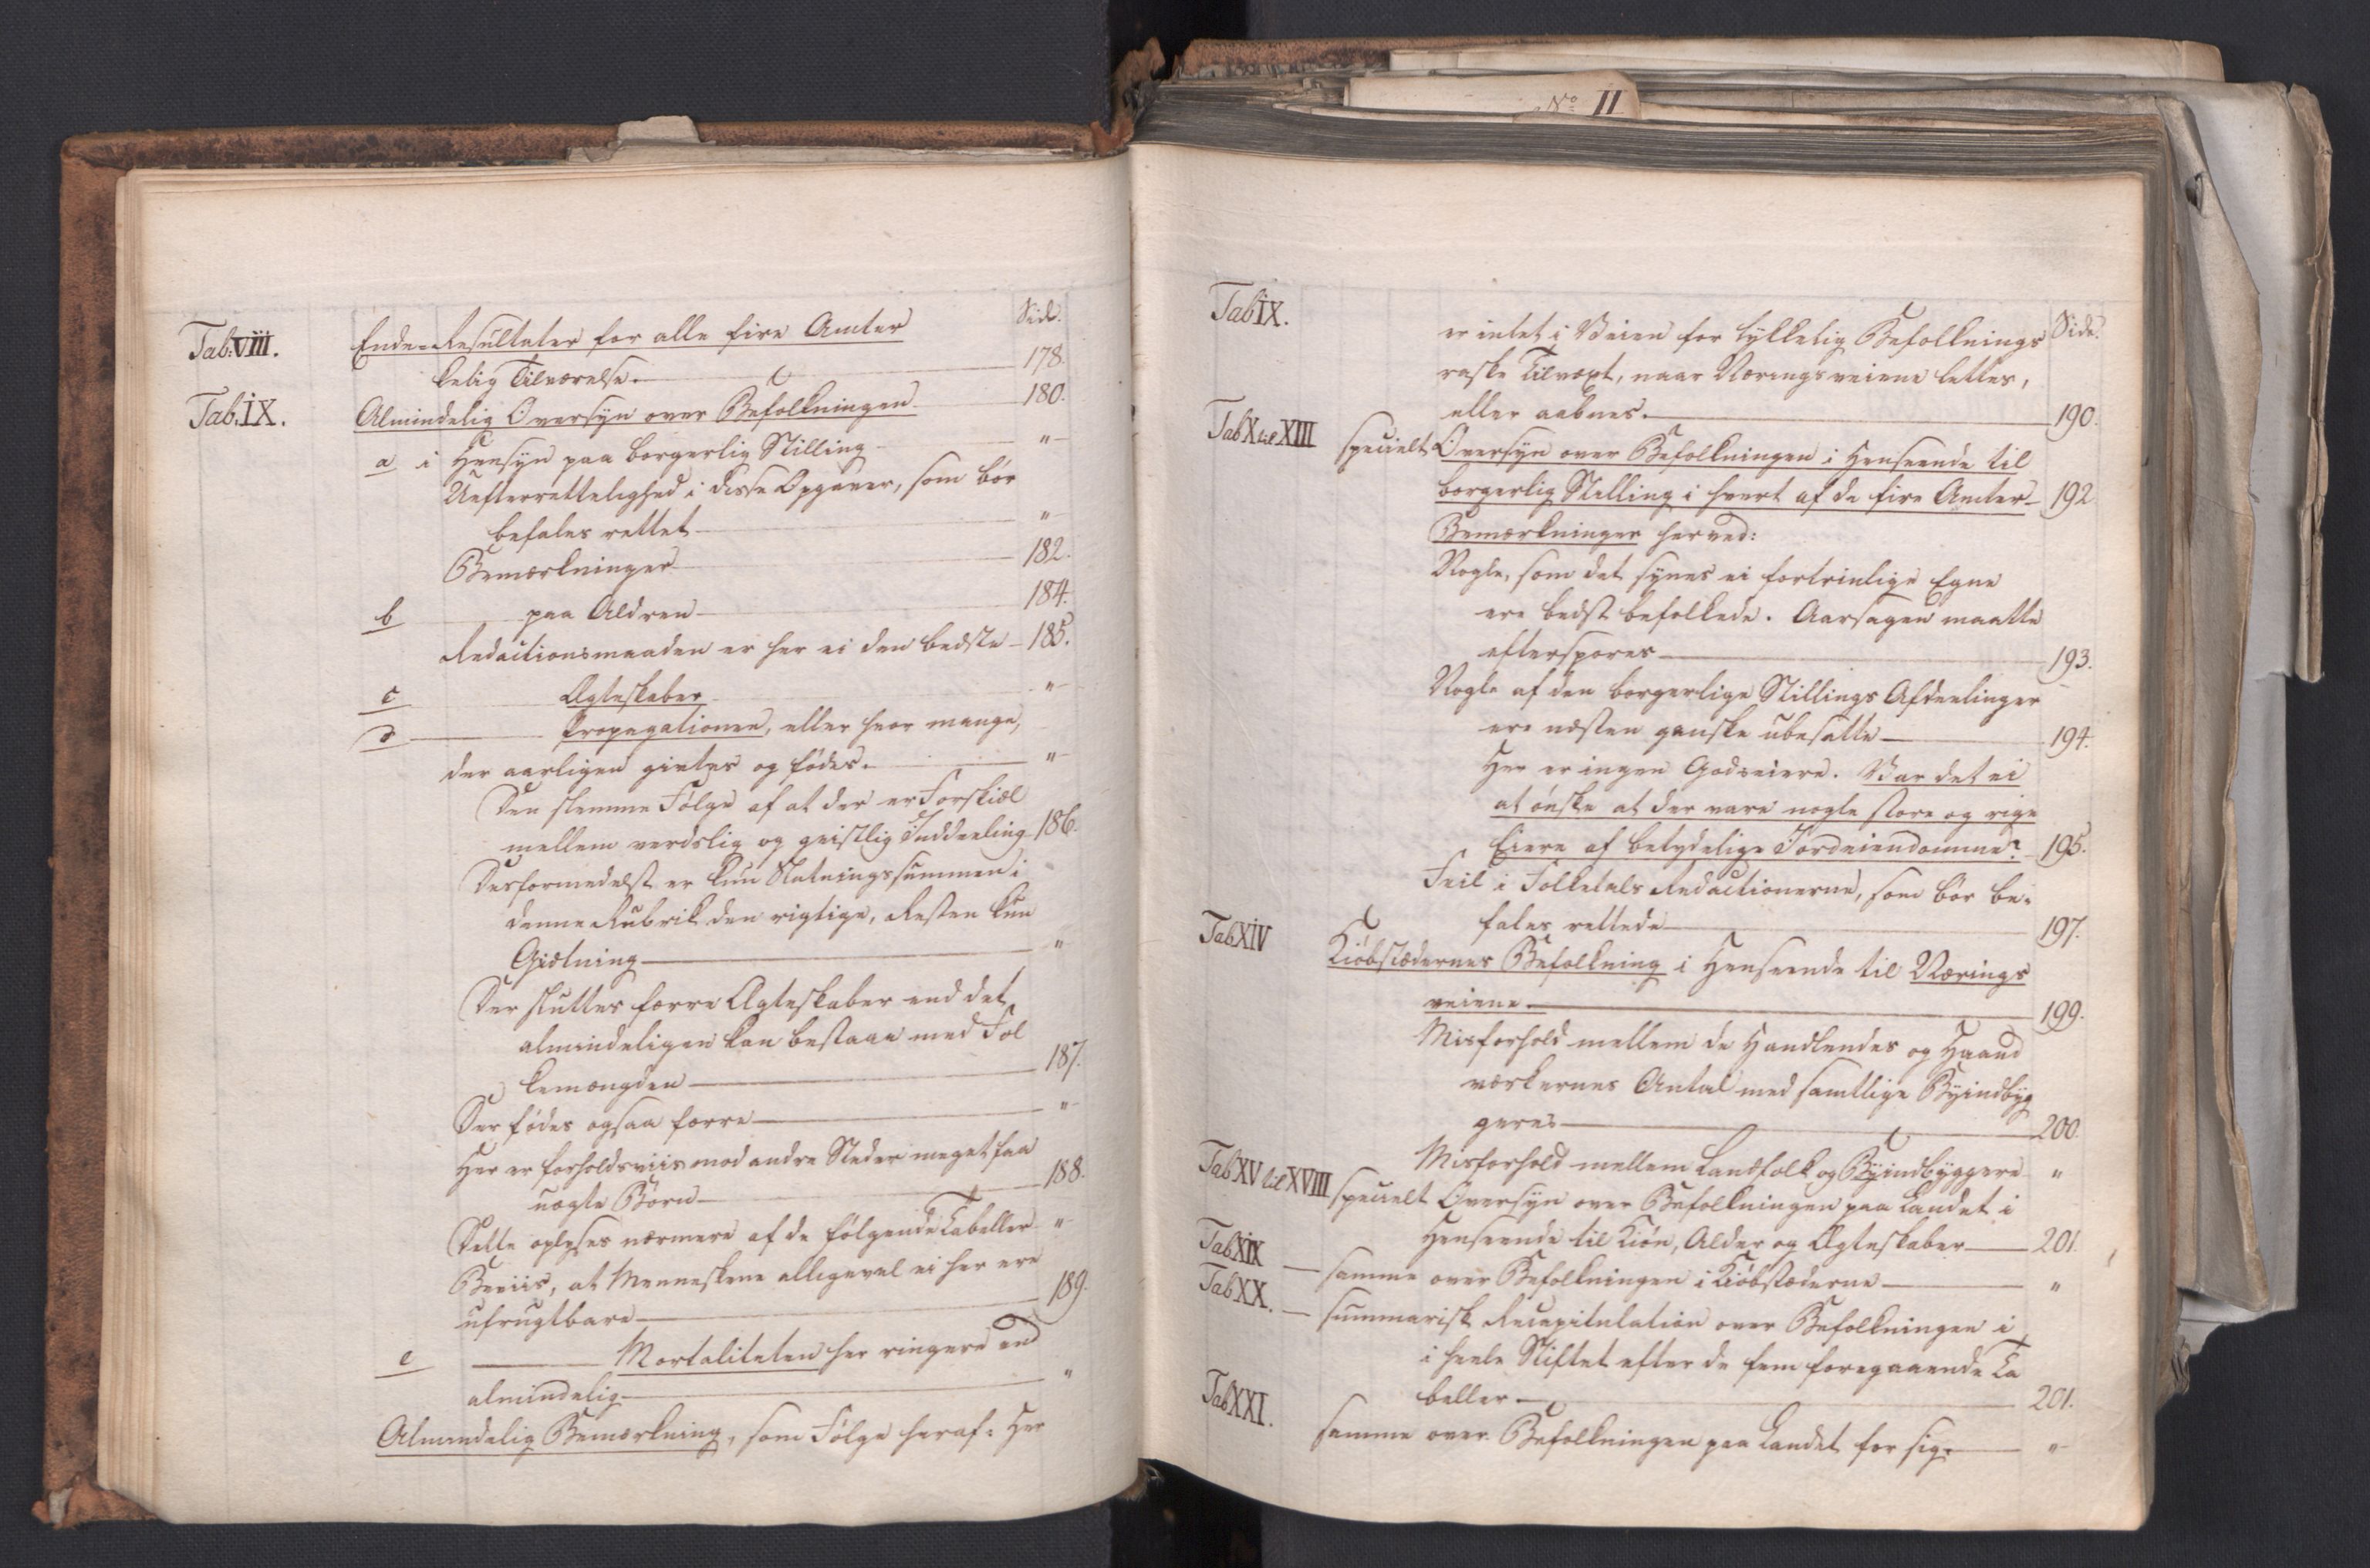 Side.
Tab: VIII. Ende-Resultater for alle fire Amter
kelig Tilværelse. 178.
Tab. IX. Almindelig Oversyn over Befolkningen 180.
a i Hensyn paa borgerlig Stilling "
Uefterrettelighed i disse Opgaver, som bør
befales rettet "
Bemærkninger 182.
b paa Aldren 184.
Redactionsmaaden er her ei den bedste 185.
c Ægteskaber "
d Propagationen, eller hvor mange,
der aarligen giftes og fødes. "
Den slemme Følge af at der er Forskiæl
mellem verdslig og geistlig Inddeeling 186.
Desformedelst er kun Slutningssummen i
denne Rubrik den rigtige, Resten kun
Giætning "
Der sluttes færre Ægteskaber end det
almindeligen kan bestaae med Fol
kemængden 187.
Der fødes ogsaa færre "
Her er forholdsviis mod andre Steder meget faa
uægte Børn 188.
Dette oplyses nærmere af de følgende Tabeller "
Beviis, at Menneskene alligevel ei her ere
ufrugtbare 189.
e Mortaliteten her ringere end
almindelig "
Almindelig Bemærkning, som Følge heraf: Her
No II
Tab IX. Side.
er intet i Veien for lykkelig Befolknings
raske Tilvæxt, naar Næringsveiene lettes,
eller aabnes. 190.
Tab X til XIII specielt Oversyn over Befolkningen i Henseende til
borgerlig Stilling i hvert af de fire Amter 192
Bemærkninger herved:
Nogle, som det synes ei fortrinlige Egne
ere bedst befolkede. Aarsagen maatte
efterspores 193.
Nogle af den borgerlige Stillings Afdeelinger
ere næsten ganske ubesatte 194.
Her er ingen Godseiere. Var det ei
at ønske at der vare nogle store og rige
Eiere af betydelige Jordeiendomme? 195.
Feil i Folketals Redactionerne, som bør be-
fales rettede 197.
Tab XIV Kiøbstædernes Befolkning i Henseende til Nærings
veiene. 199.
Misforhold mellem de Handlendes og Haand
værkernes Antal med samtlige Byindbyg
geres 200.
Misforhold mellem Landfolk og Byindbyggere "
Tab XV til XVIII specielt Oversyn over Befolkningen paa Landet i
Henseende til Kiøn, Alder og Ægteskaber 201.
Tab XIX — samme over Befolkningen i Kiøbstæderne "
Tab XX. — summarisk Recapitulation over Befolkningen i
i heele Stiftet efter de fem foregaaende Ta
beller 201.
Tab XXI. samme over Befolkningen paa Landet for sig. "